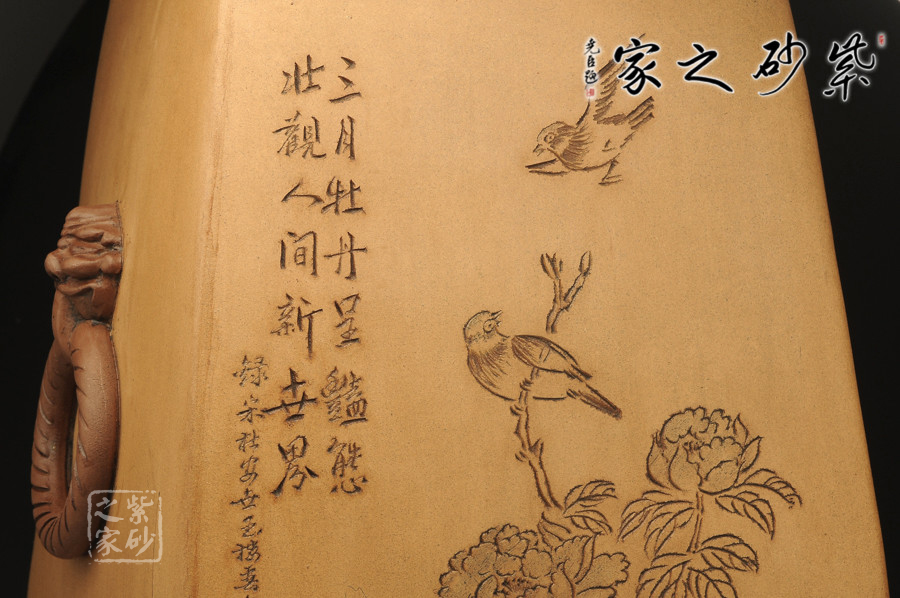 三月牡丹呈豔態
壯觀人间新世界
錄宋杜安世玉樓春
紫砂之家
紫砂之家